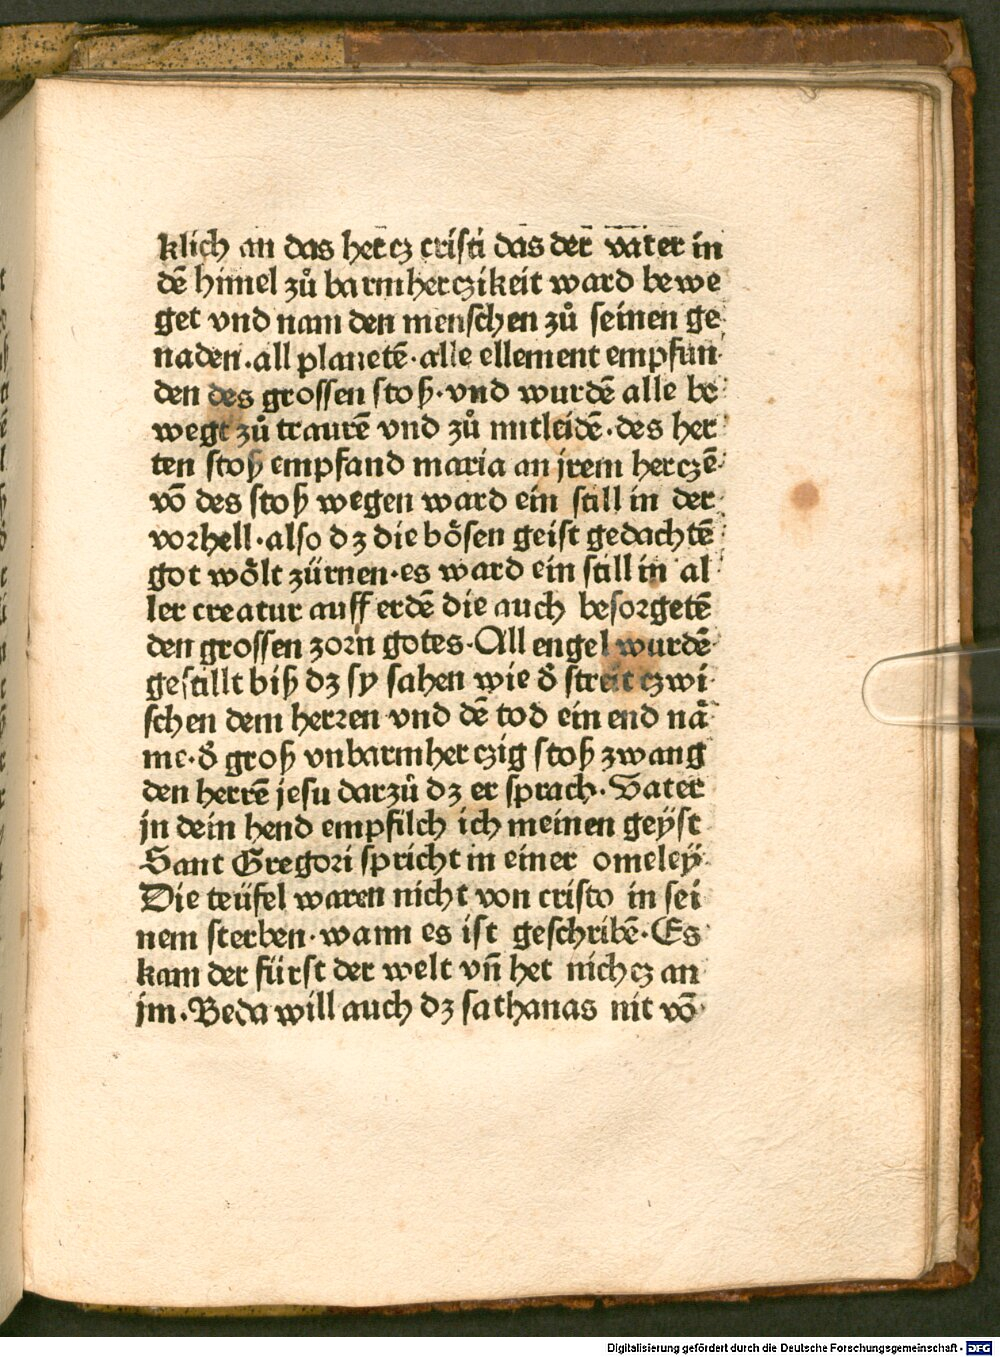 klich an das hercz cristi das der vater in
dē himel zů barmherczikeit ward bewe
get vnd nam den menschen zů seinen ge
naden.all planetē.alle ellement empfun
den des grossen stoß.vnd wurdē alle be
wegt zů traurē vnd zů mitleidē.des her
ten stoß empfand maria an jrem herczē
vō des stoß wegen ward ein still in der
vorhell.also dz die bösen geist gedachtē
got wölt zürnen.es ward ein still in al
ler creatur auff erdē die auch besorgetē
den grossen zorn gotes.All engel wurdē
gestillt biß dz sy sahen wie d̕ streit czwi
schen dem herren vnd dē tod ein end nā
me.d̕ groß vnbarmherczig stoß zwang
den herrē jesu darzů dz er sprach.Vater
in dein hend empfilch ich meinen geÿst
Sant Gregori spricht in einer omeleÿ
Die teüfel waren nicht von cristo in sei
nem sterben.wann es ist geschribē.Es
kam der fürst der welt vn̄ het nichcz an
im.Beda will auch dz sathanas nit vō
Digitalisierung gefördert durch die Deutsche Forschungsgemeinschaft - DFG